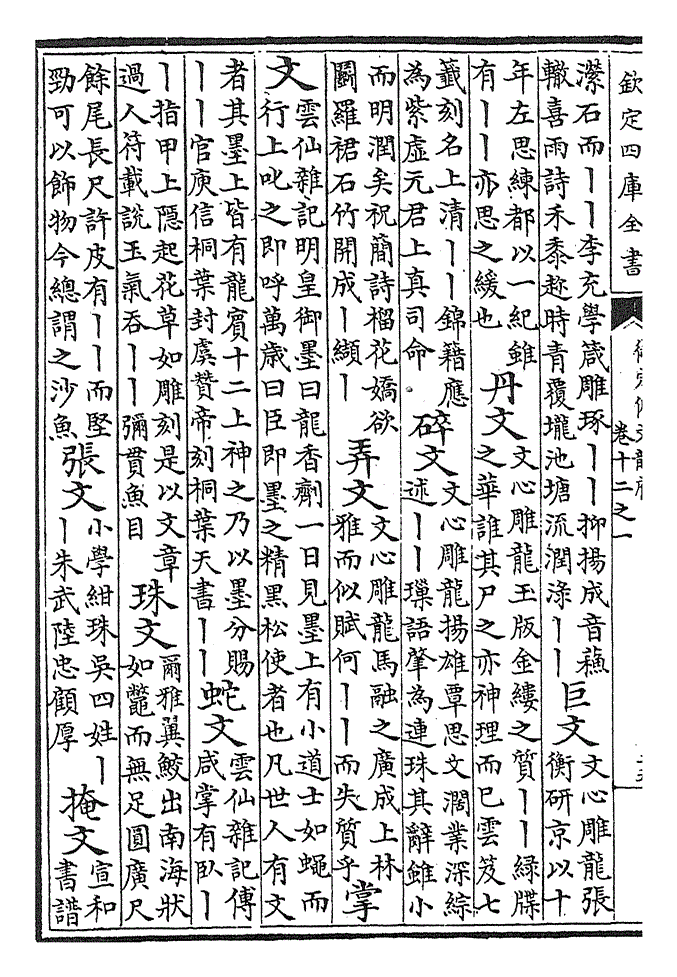 欽定四庫全書
卷十二之一
石而丨丨李充學箴雕琢丨丨抑揚成音蘓
轍喜雨詩禾黍趂時青覆壠池塘流潤渌丨丨
巨文
文心雕龍張
衡研京以十
年左思練都以一紀雖
有丨丨亦思之緩也
丹文
文心雕龍玉版金縷之質丨丨緑牒
之華誰其尸之亦神理而已雲笈七
籖刻名上清丨丨錦籍應
為紫虛元君上真司命
碎文
文心雕龍揚雄覃思文濶業深綜
述丨丨瑣語肇為連珠其辭雖小
而明潤矣祝簡詩榴花嬌欲
鬬羅裙石竹開成丨纈丨
弄文
文心雕龍馬融之廣成上林
雅而似賦何丨丨而失質乎
掌
文
雲仙雜記明皇御墨曰龍香劑一日見墨上有小道士如蠅而
行上叱之即呼萬歲曰臣即墨之精黑松使者也凡世人有文
者其墨上皆有龍賓十二上神之乃以墨分賜
丨丨官庾信桐葉封虞贊帝刻桐葉天書丨丨
蛇文
雲仙雜記傅
咸掌有卧丨
丨指甲上隱起花草如雕刻是以文章
過人符載說玉氣吞丨丨彌貫魚目
珠文
爾雅翼鮫出南海狀
如鼈而無足圓廣尺
餘尾長尺許皮有丨丨而堅
勁可以飾物今總謂之沙魚
張文
小學紺珠吳四姓丨
丨朱武陸忠顧厚
掩文
宣和
書譜